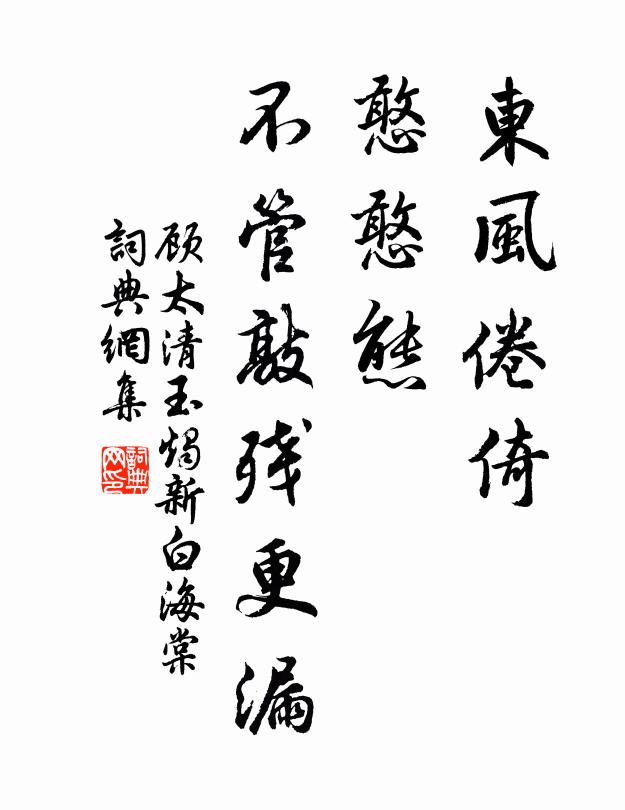 東風倦倚
憨憨態
不管敲残更漏
顾太清玉燭新白海棠
詞典網集
詞典网印